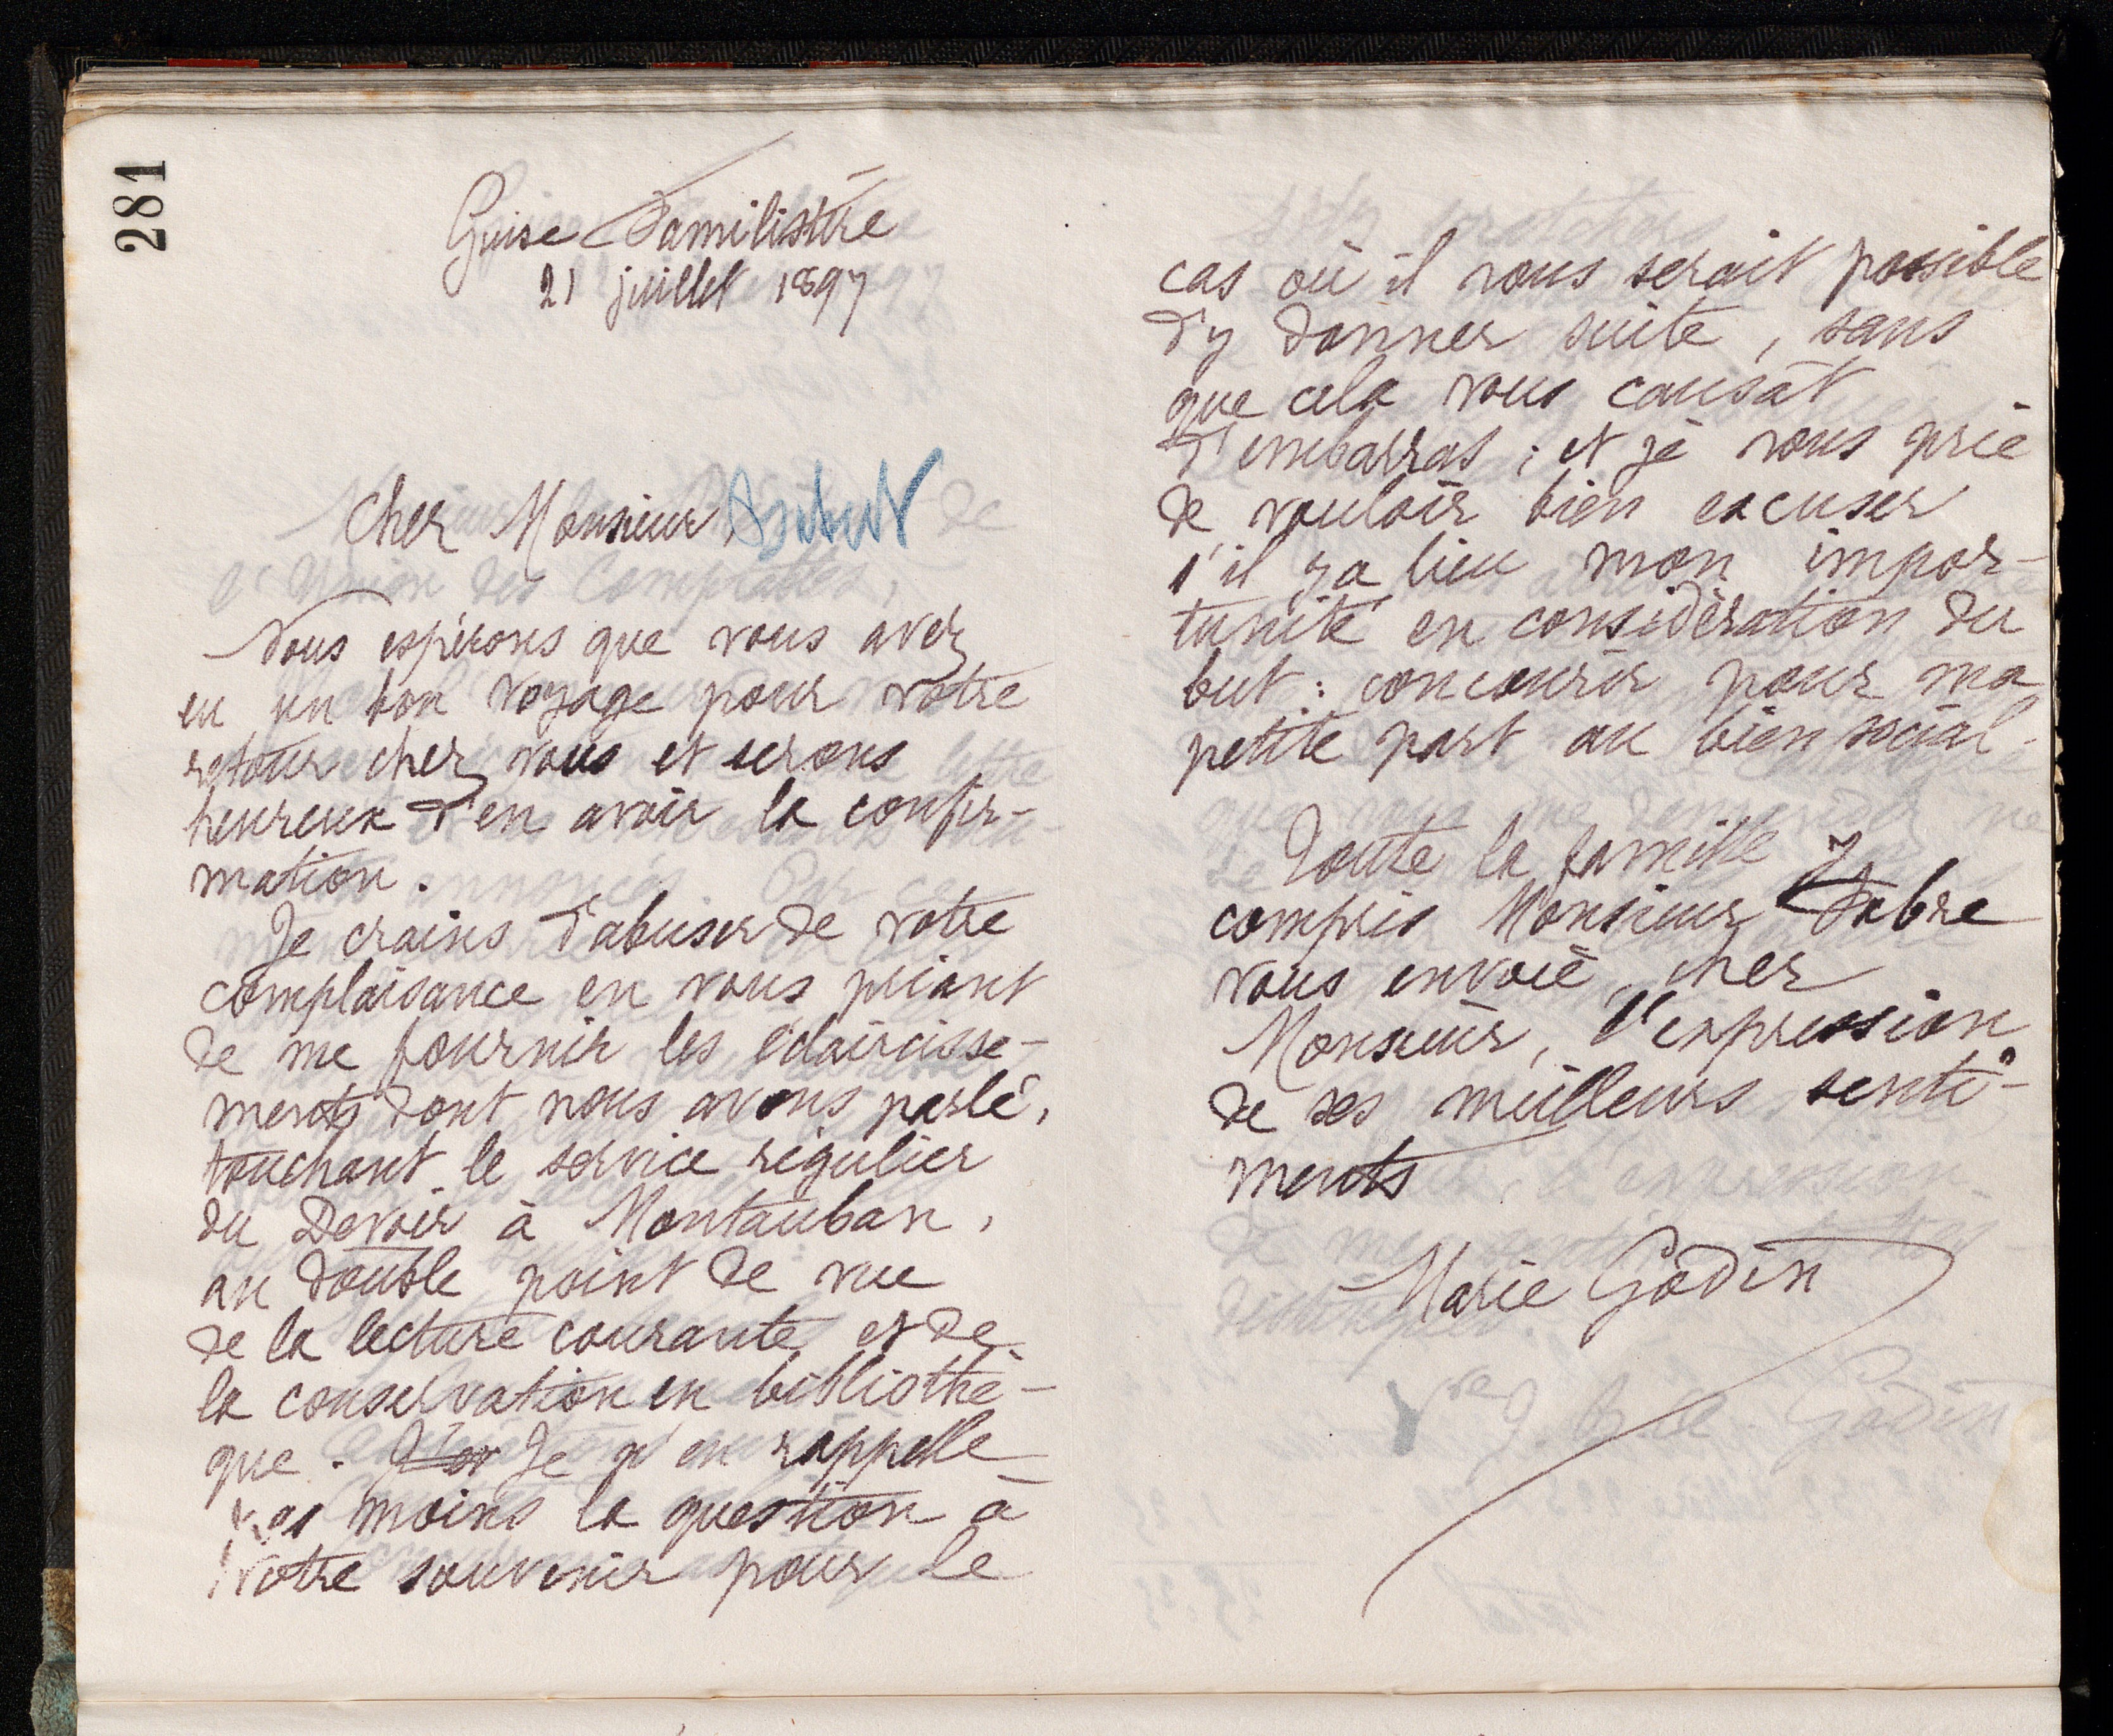 281
Guise Familistère
21 juillet 1897
Cher Monsieur,
Nous espérons que vous avez
eu un bon voyage pour votre
retour chez vous et serons
heureux d'en avoir la confir-
mation.
Je crains d'abuser de votre
complaisance en vous priant
de me fournir les éclaircisse-
ments dont nous avons parlé,
touchant le service régulier
du Devoir à Montauban,
au double point de vue
de la lecture courante et de
la conservation en bibliothè-
que. Je n'en rappelle
rai moins la question à
votre souvenir pour le
cas où il vous serait possible
d'y donner suite, sans
que cela vous causât
d'embarras ; et je vous prie
de vouloir bien excuser
s'il y a lieu mon impor-
tunité en considération du
but : concourir pour ma
petite part au bien social.
Toute la famille y
compris Monsieur Fabre
vous envoie, cher
Monsieur, l'expression
de ses meilleurs senti-
ments
Marie Godin